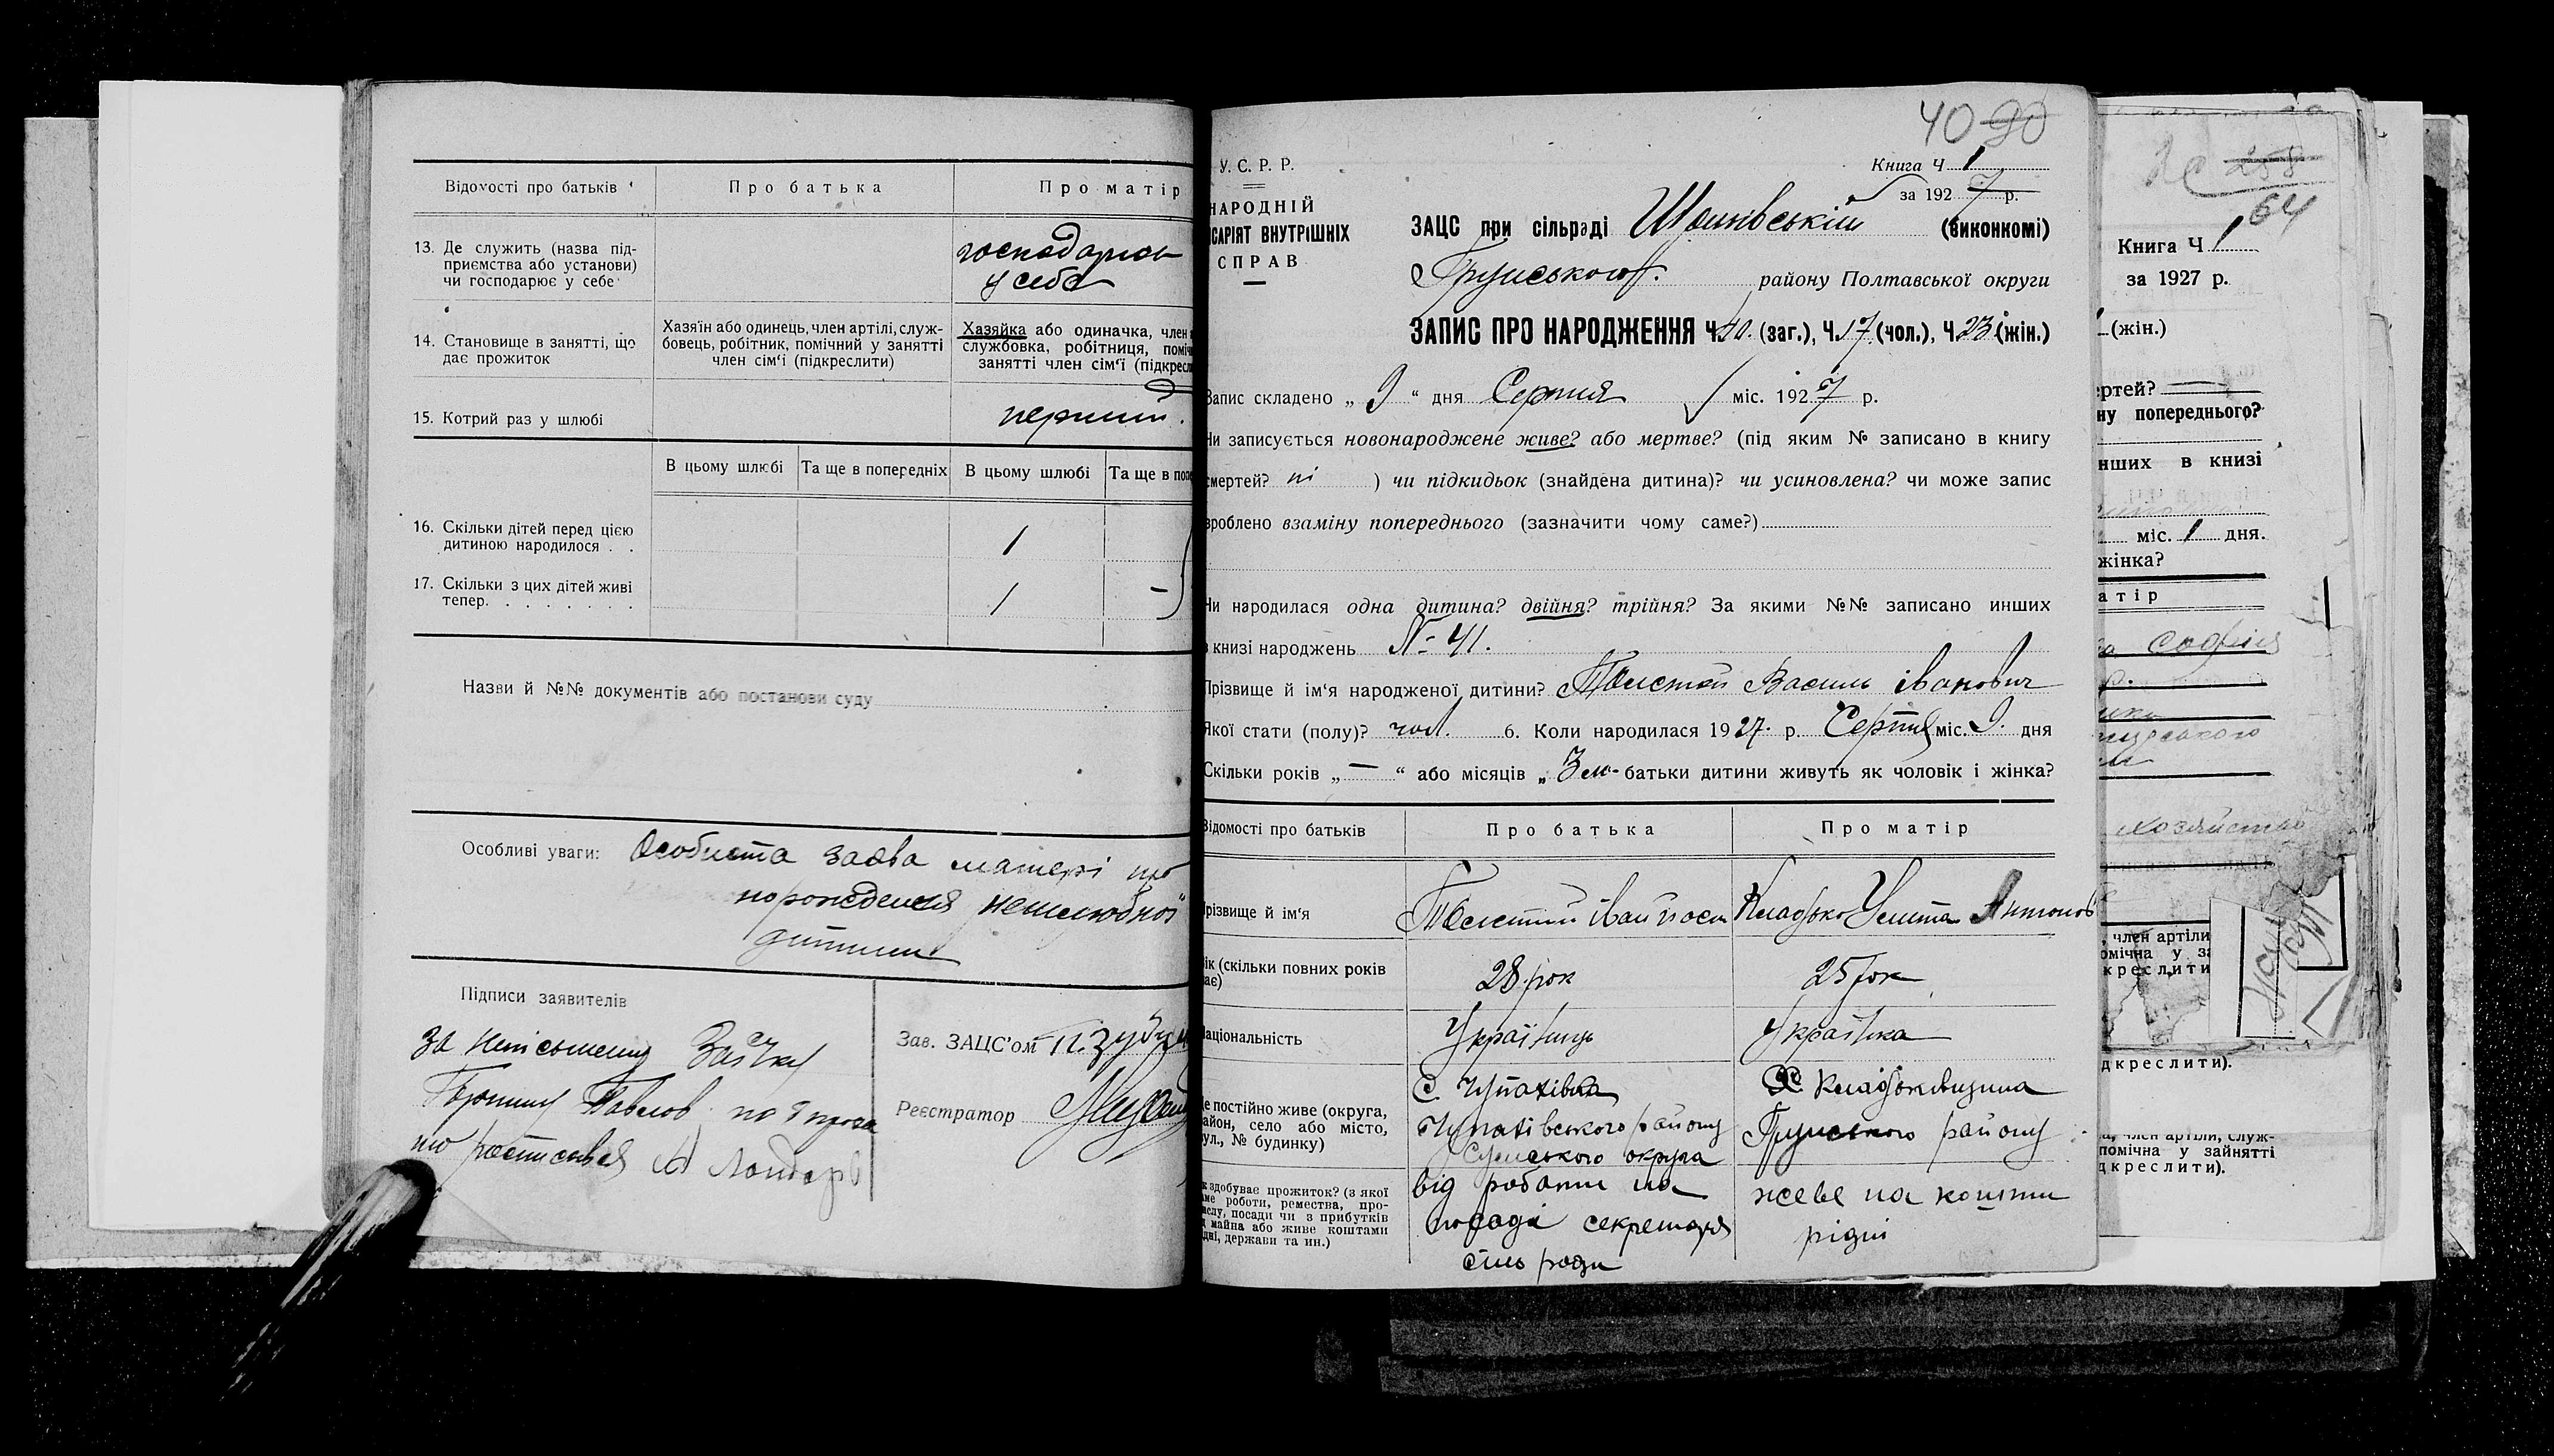 Відомості про батьків
Про батька
Про матір
13. Де служить (назва під-
приємства або установи)
чи господарює у себе
господарює
у себе
14. Становище в занятті, що
дає прожиток
Хазяїн або одинець, член артілі, служ-
бовець, робітник, помічний у занятті
член сім'ї (підкреслити)
Хазяйка або одиначка, член
службовка, робітниця, поміч
занятті член сім'ї (підкресл
15. Котрий раз у шлюбі
перший.
В цьому шлюбі
Та ще в попередніх
В цьому шлюбі
Та ще в попе
16. Скільки дітей перед цією
дитиною народилося . .
1
17. Скільки з цих дітей живі
тепер. . . . . . . .
1 —
Назви й №№ документів або постанови суду
Особливі уваги: Особиста заява матері про
порождения нешлюбної
дитини
Підписи заявителів
за неписьменну Заїчку
Павлов. по її проха
ню росписався А
Зав. ЗАЦС'ом
Реєстратор
40 90
У. С. Р. Р.
НАРОДНІЙ
САРІЯТ ВНУТРІШНІХ
СПРАВ
Книга Ч 1
за 192 7 р.
ЗАЦС при сільраді (виконкомі)
Грунського району Полтавської округи
ЗАПИС ПРО НАРОДЖЕННЯ Ч. 40. (заг.), Ч. 17 (чол.), Ч. 23 (жін.)
Запис складено „ 9 “ дня Серпня міс. 192 7 р.
Чи записується новонароджене живе? або мертве? (під яким № записано в книгу
смертей? ні ) чи підкидьок (знайдена дитина)? чи усиновлена? чи може запис
зроблено взаміну попереднього (зазначити чому саме?)
Чи народилася одна дитина? двійня? трійня? За якими №№ записано инших
в книзі народжень № 41.
Прізвище й ім'я народженої дитини? Толстой Василь Іванович
Якої стати (полу)? чол. 6. Коли народилася 19 27. р. Серпня міс. 9. дня
Скільки років „ — “ або місяців „ 3 батьки дитини живуть як чоловік і жінка?
Відомості про батьків
Про батька
Про матір
прізвище й ім'я
Толстий Іван
Кладько Улита Антонов
ік (скільки повних років
ає)
28 рок
25 рок
аціональність
Українць
Українка
е постійно живе (округа,
айон, село або місто,
ул., № будинку)
С. Чупахівка
Чупахівського району
Сумського округа
Х. Кладьковщина
Грунського району
к здобуває прожиток? (з якої
аме роботи, ремества, про-
ислу, посади чи з прибутків
д майна або живе коштами
дні, держави та ин.)
від роботи на
посаді секретаря
сіль ради
живе на кошти
рідні
258
64
Книга Ч 1
за 1927 р.
(жін.)
ртей? —
ну попереднього?
нших в книзі
міс. 1 дня.
жінка?
атір
Софія
р.
хозяйство
, член артіли
омічна у за
креслити
дкреслити).
а, член артіли, служ-
помічна у зайнятті
дкреслити).